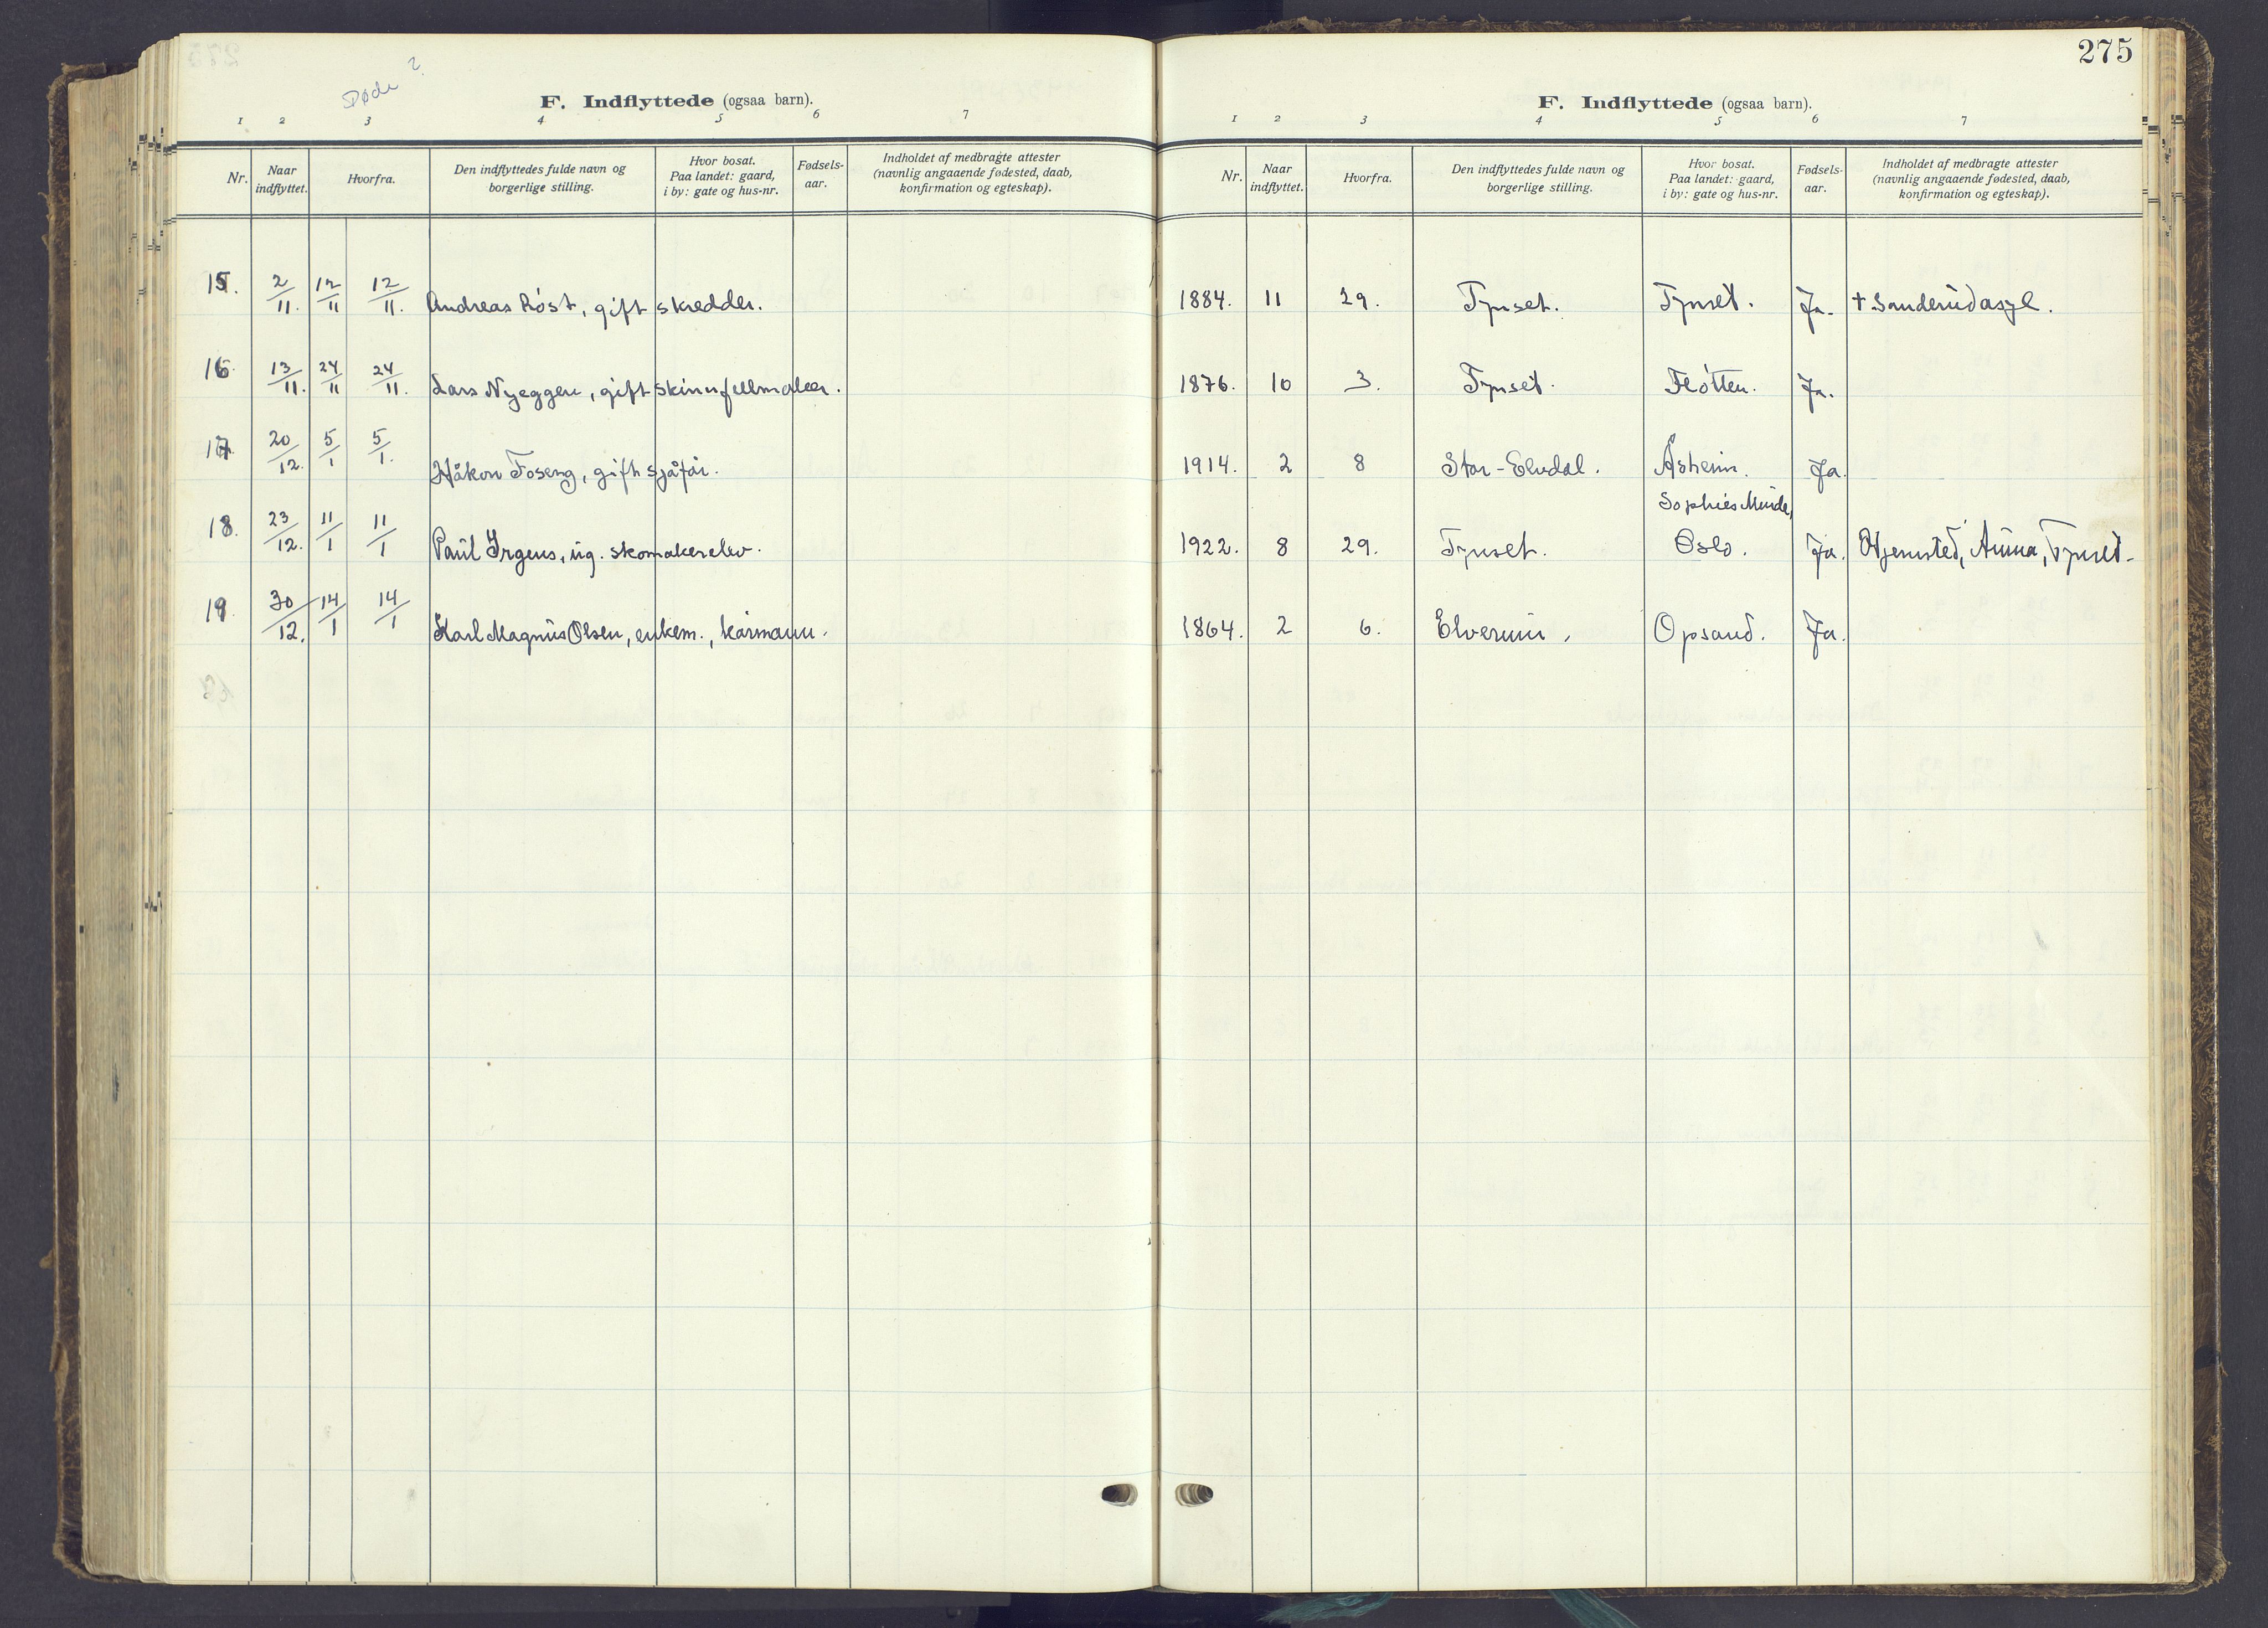 275
Døde ?
F. Indflyttede (ogsaa barn).
1 2 3 4 5 6 7
Nr. Naar indflyttet. Hvorfra. Den indflyttedes fulde navn og borgerlige stilling. Hvor bosat. Paa landet: gaard, i by: gate og hus-nr. Fødsels-aar. Indholdet af medbragte attester (navnlig angaaende fødested, daab, konfirmation og egteskap).
F. Indflyttede (ogsaa barn).
1 2 3 4 5 6 7
Nr. Naar indflyttet. Hvorfra. Den indflyttedes fulde navn og borgerlige stilling. Hvor bosat. Paa landet: gaard, i by: gate og hus-nr. Fødsels-aar. Indholdet af medbragte attester (navnlig angaaende fødested, daab, konfirmation og egteskap).
15. 2/11. 12/11 12/11. Andreas Røst, gift skredder. 1884. 11 29. Tynset. Tynset. Ja. † Sanderud asyl.
16 13/11. 24/11 24/11. Lars Nyeggen, gift skinnfellmaker. 1876. 10 3. Tynset. Fløtten. Ja.
17 20/12. 5/1 5/1. Håkon Foseng, gift sjåfør. 1914. 2 8 Stor-Elvdal. Åsheim. Ja.
Sophies Minde,
18. 23/12. 11/1 11/1 Paul Irgens, ug. skomakerelev. 1922. 8 29. Tynset. Oslo. Ja. Hjemsted, Auma, Tynset.
19. 30/12. 14/1 14/1 Karl Magnus Olsen, enkem., kårmann. 1864. 2 6. Elverum. Opsand. Ja.